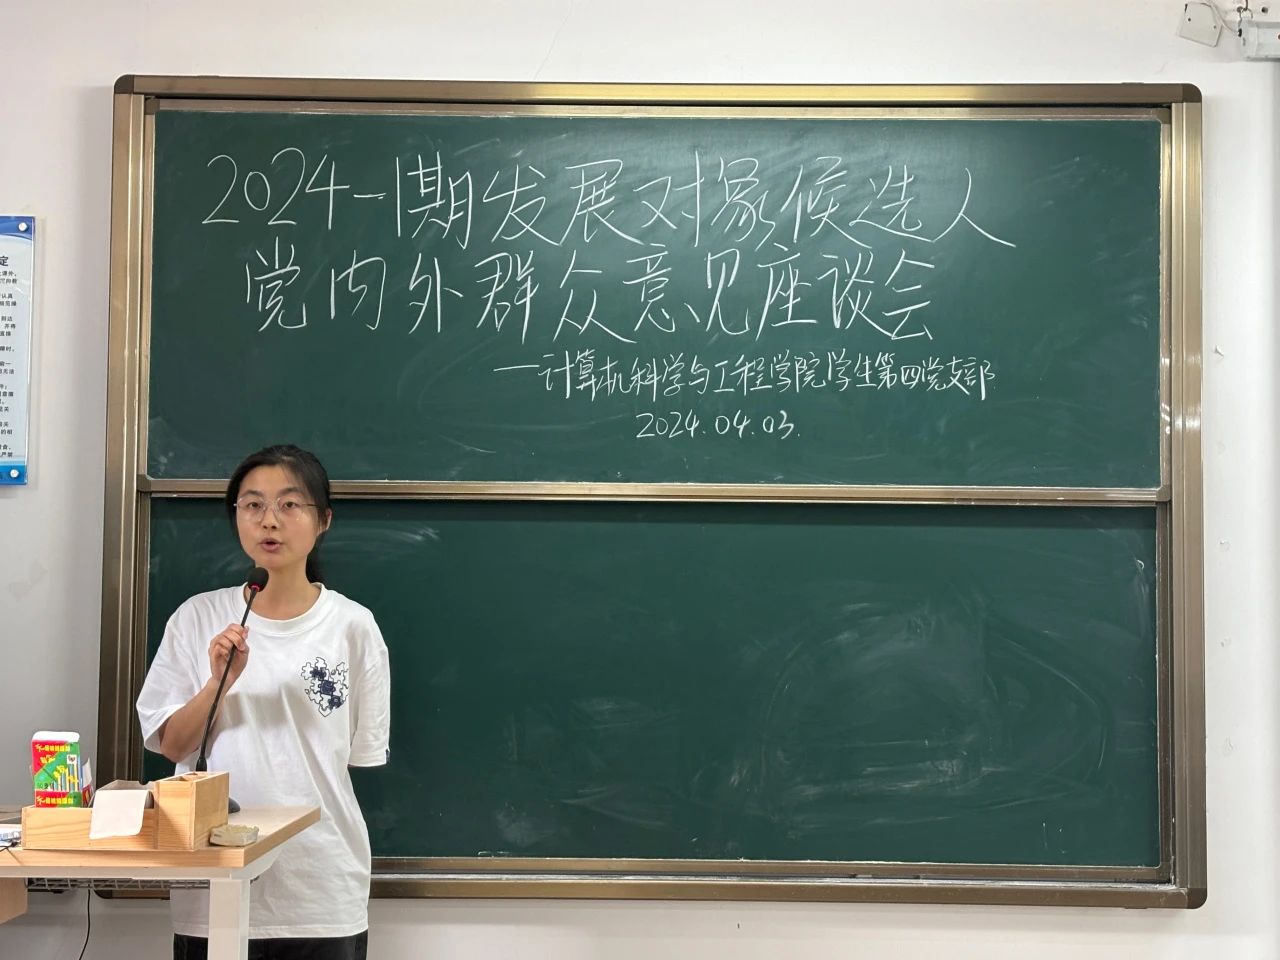 2024-1期发展对象候选人
党内外群众意见座谈会
—计算机科学与工程学院学生第四党支部
2024.04.03.
定